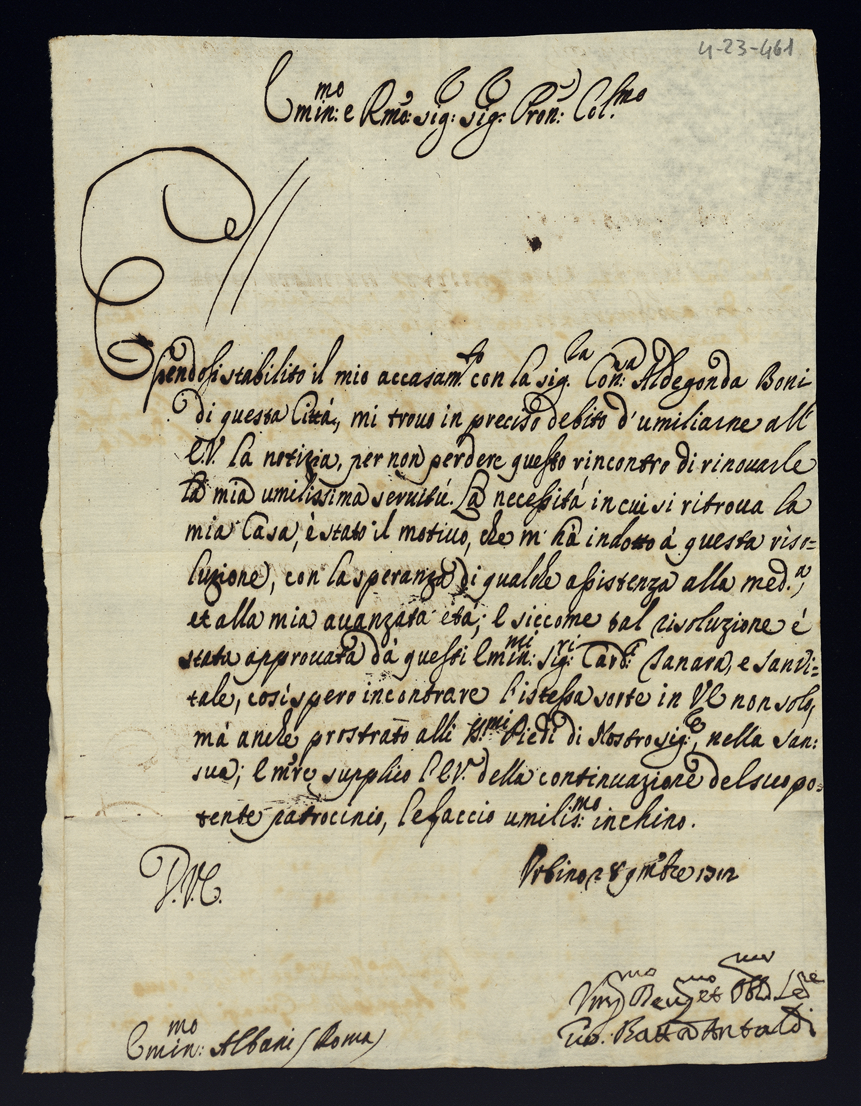 4-23-461
Emin:mo e Rmo: sig:e sig:e Pron: Col:mo
Essendosi stabilito il mio accasam:to con la sig:ra Con:a Aldegonda Boni
di questa Città, mi trovo in preciso debito d'umiliarne all'
E.V. la notizia, per non perdere questo rincontro di rinovarle
la mia umilissima servitù. La necessità in cui si ritrova la
mia Casa, è stato il motivo, che m'hà indotto à questa riso=
luzione, con la speranza di qualche assistenza alla med:a,
et alla mia avanzata età; E siccome tal risoluzione è
stata approvata dà questi Emin:mi sig:ri Card:i Tanara, e Sanvi=
tale, così spero incontrare l'istessa sorte in VE non solo,
mà anche prostrato alli SSmi Piedi di Nostro sig:e, nella San:
sua; E m're supplico l'E.V. della continuazione del suo po=
tente patrocinio, le faccio umilis:mo inchino.
D.V.E.
Urbino 28 9mbre 1712
Vmo Devmo et Obbmo Sre
Gio. Batta Antaldi
Emin:mo Albani (Roma)